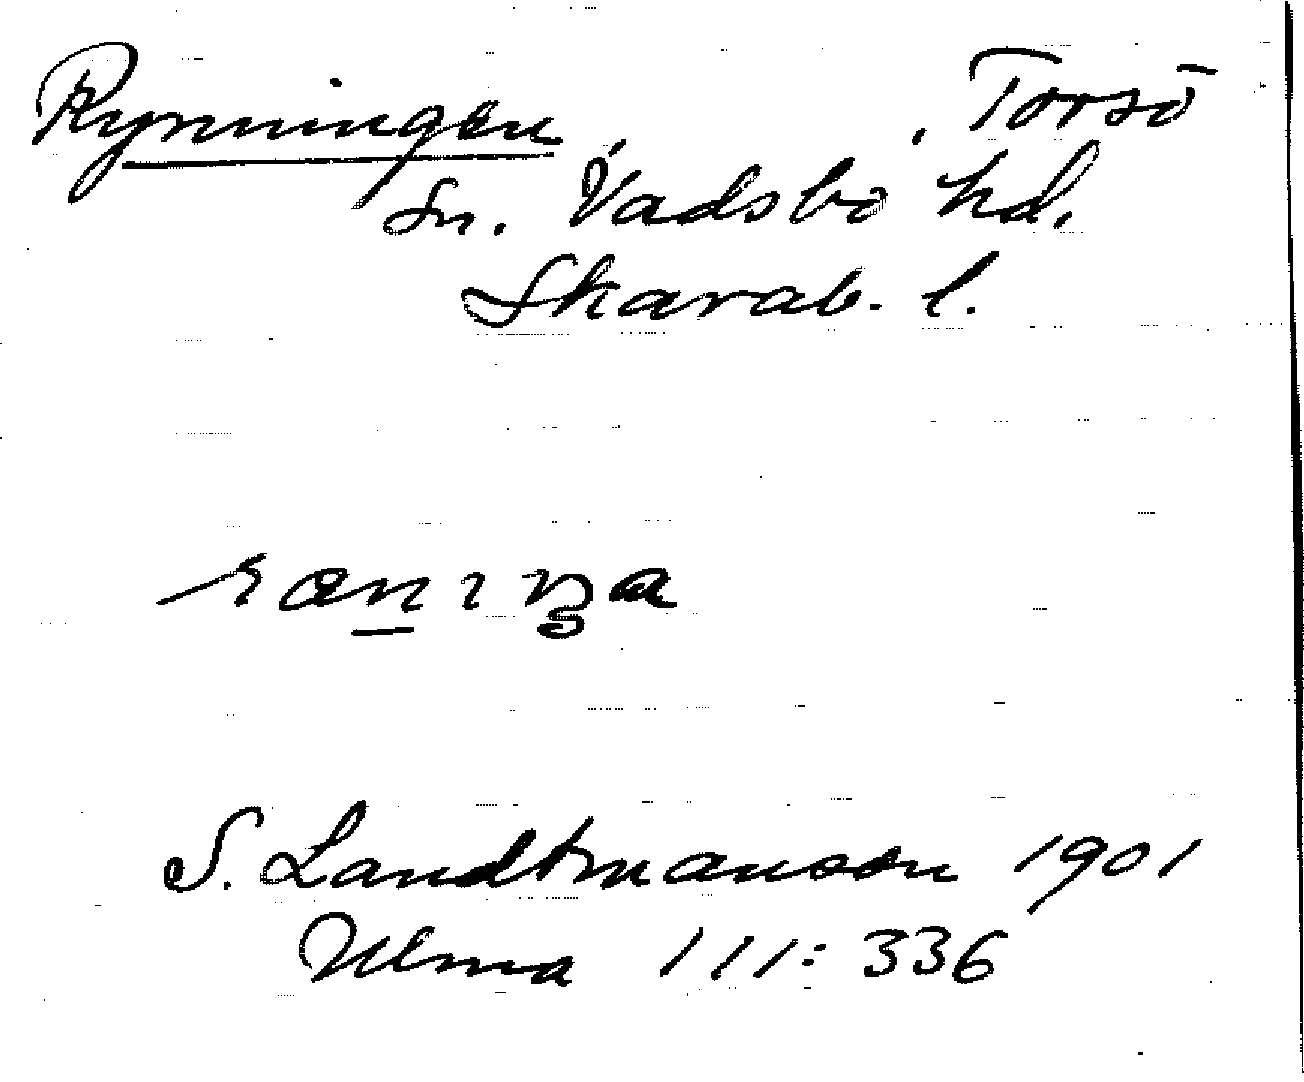 Rynningen, Torsö
sn. Vadsbo hd.
Skarab. l.
S. Landtmanson 1901
Ulma 111:336